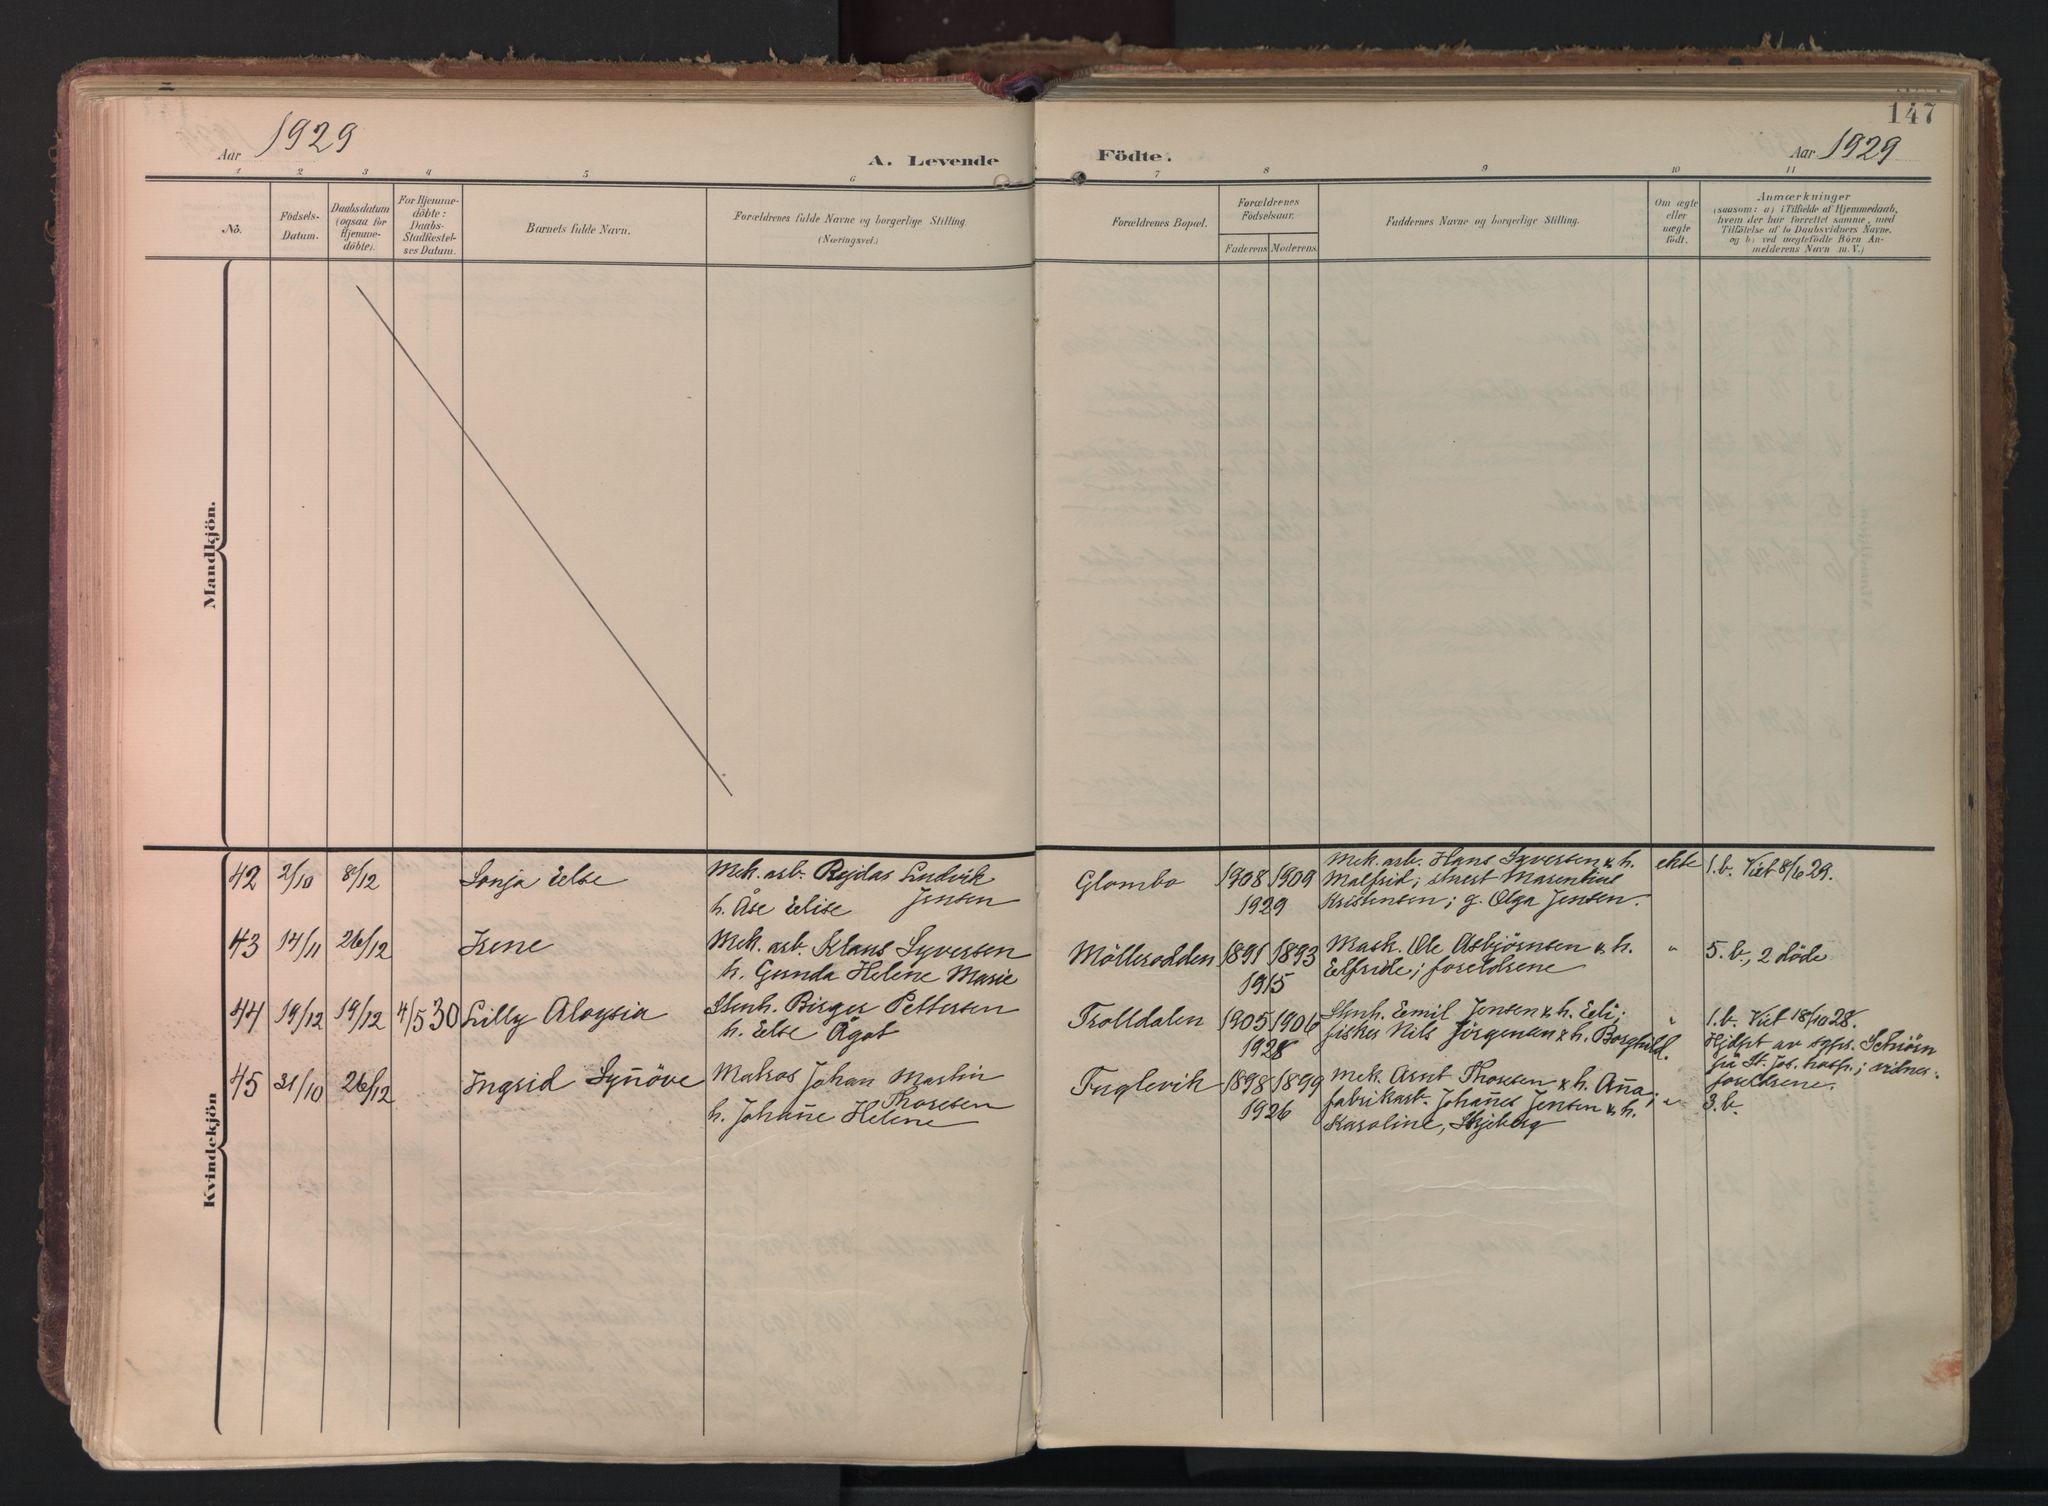 147
Aar 1929
A. Levende Födte.
Aar 1929
1 2 3 4 5 6 7 8 9 10 11
No.
Födsels-
Datum.
Daabsdatum
(ogsaa for
Hjemme-
döbte).
For Hjemme-
döbte:
Daabs-
Stadfæstel-
ses Datum.
Barnets fulde Navn.
Forældrenes fulde Navne og borgerlige Stilling.
(Næringsvei.)
Forældrenes Bopæl.
Forældrenes
Födselsaar.
Faderens
Moderens.
Faddernes Navne og borgerlige Stilling.
Om ægte
eller
uægte
födt.
Anmærkninger
(saasom: a) i Tilfælde af Hjemmedaab,
hvem der har forrettet samme, med
Tilföielse af to Daabsvidners Navne,
og b) ved uægtefödte Börn An-
melderens Navn m. V.)
Mandkjön.
Kvindekjön
42 2/10 8/12 Sonja Else Mek. arb. Ludvik Jensen
h. Åse Elise
Glombo 1908 1909
1929
Mek. arb. Hans Syversen & h.
Malfrid; Marentine
Kristensen; g. Olga Jensen.
ekte 1. b. Viet 8/6 29.
43 17/11 26/12 Irene Mek. arb. Klaus Syversen
h. Gunda Helene Marie
Möllerodden 1891 1893
1915
Mask. Ole Asbjörnsen & h.
Elfride; foreldrene
" 5. b., 2 döde
44 19/12 19/12 4/5 30 Lilly Aloysia Stenh. Birger Pettersen
h. Else Ågot
Trolldalen 1905 1906
1928
Stenh. Emil Jensen & h. Eli;
fisker Nils Jörgensen & h. Borghild.
" 1. b. Viet 18/10 28.
Hjdpt av
frå St. Jos. hosp.; vidner:
foreldrene.
45 31/10 26/12 Ingrid Synnöve Matros Johan Martin
Thoresen
h. Johanne Helene
Fuglevik 1898 1899
1926
Mek. Arnt Thoresen & h. Anna;
fabrikarb. Johannes Jensen & h.
Karoline, Skjeberg
" 3. b.